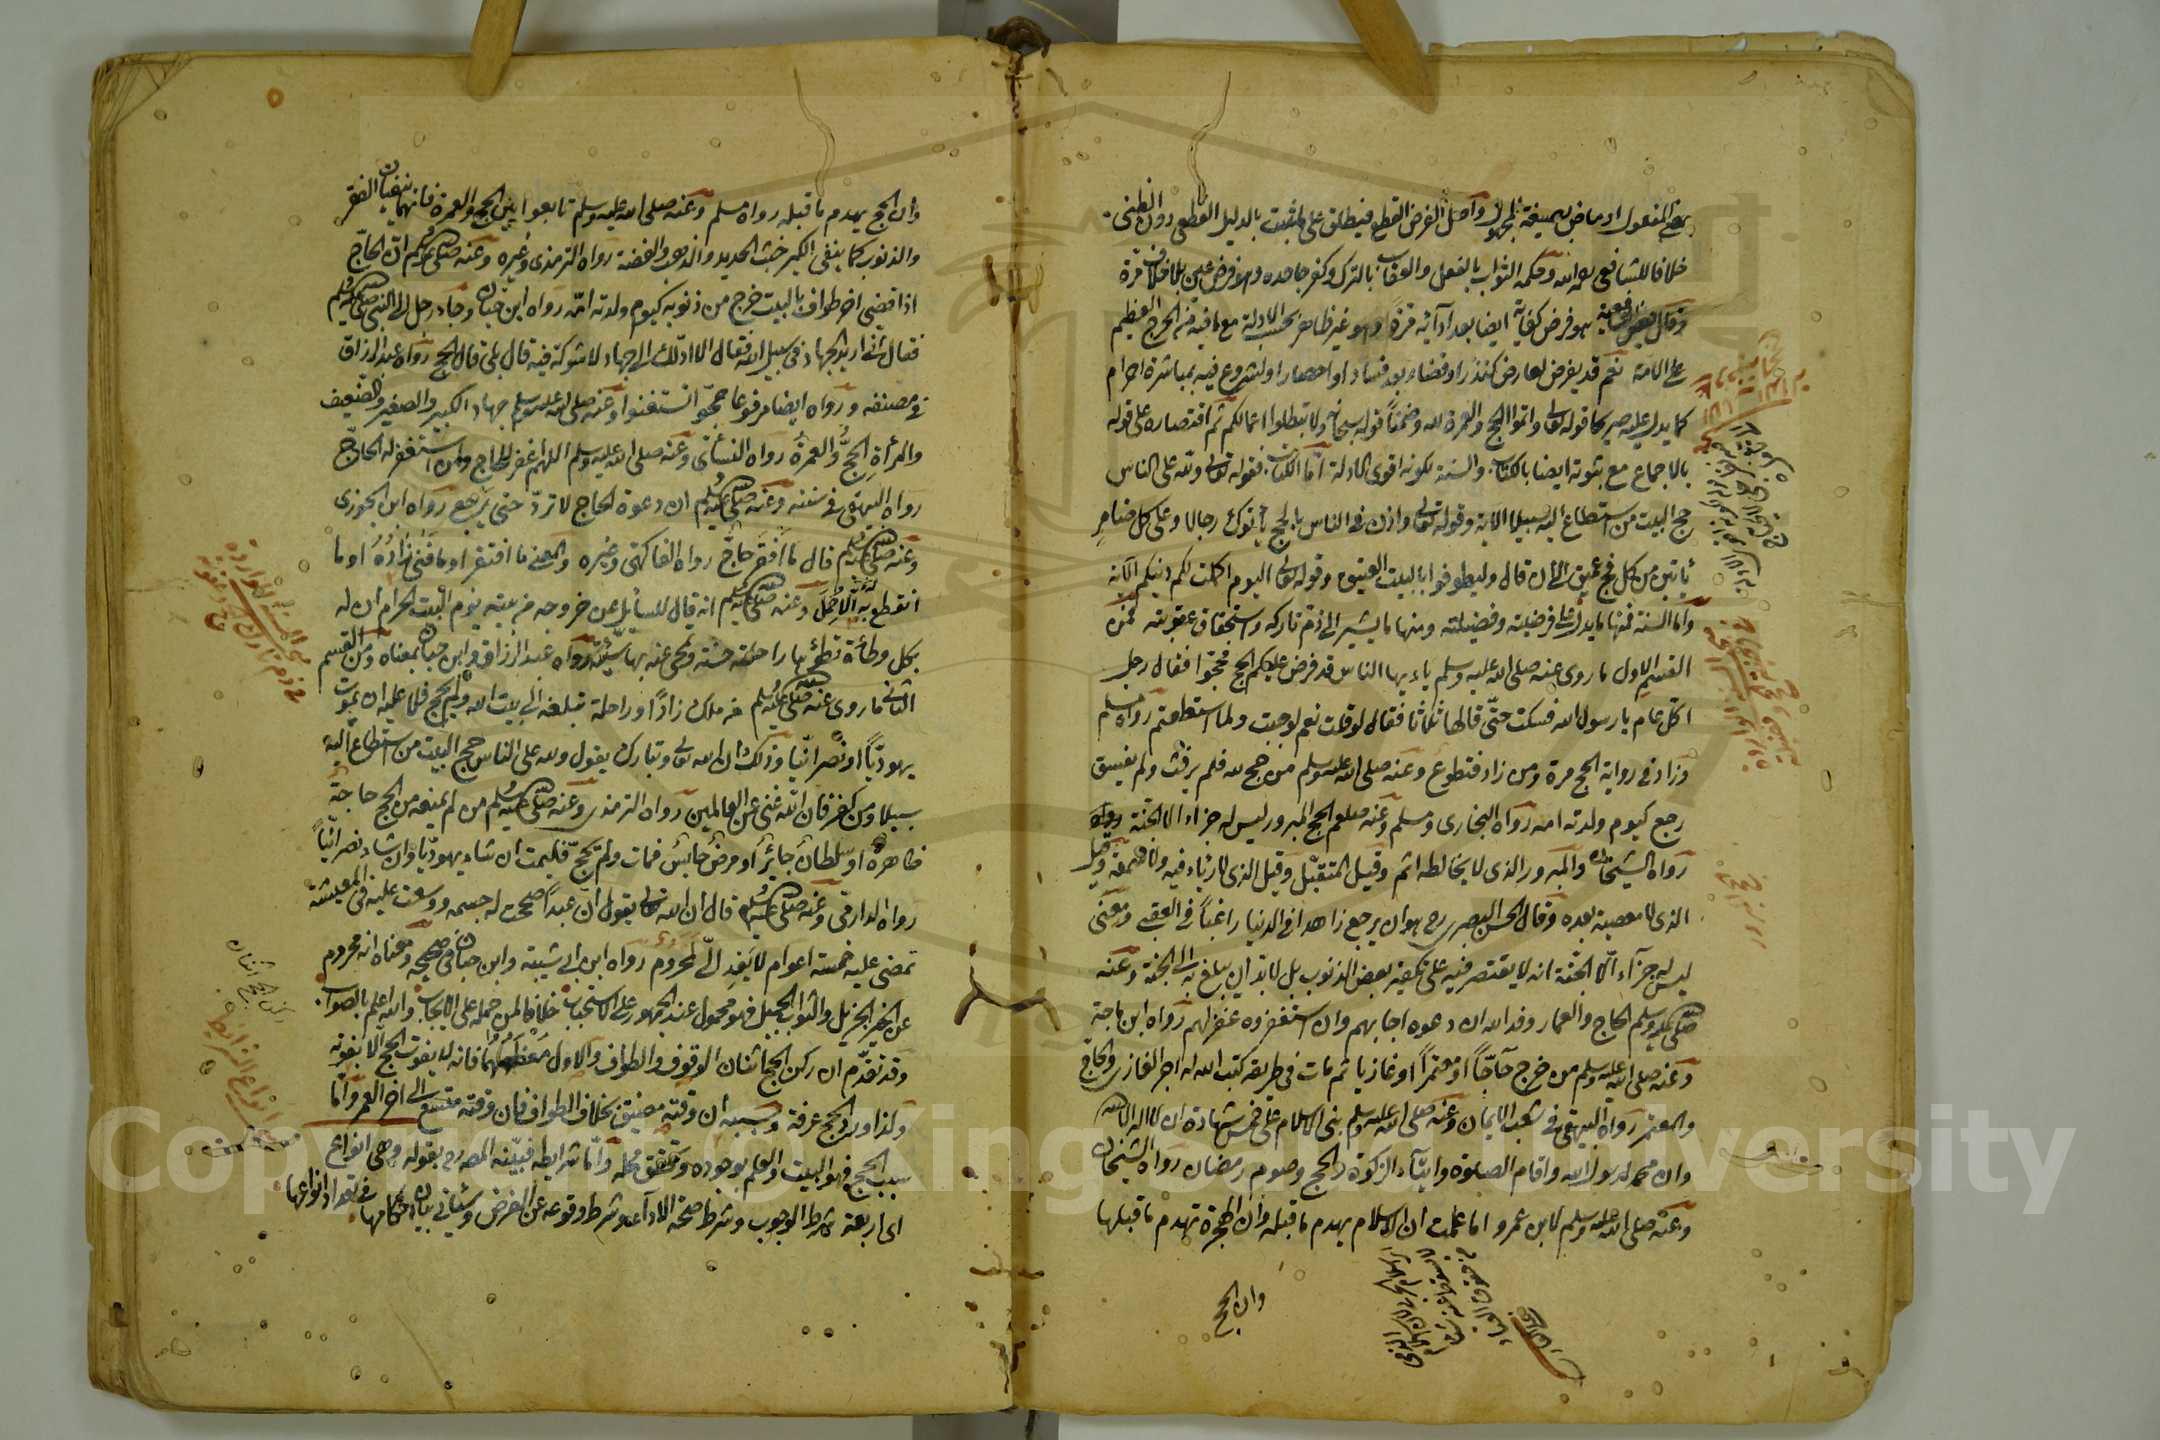 بمعنى المفعول او ماض بصيغة المجهول واصل الفرض القطع فيطلق على ما ثبت بالدليل القطعي دون الظني
خلافا للشافعي رحمه الله وحكمه الثواب بالفعل والعقاب بالترك وكفر جاحده وهو فرض عين بلا خلاف مرة
وقال بعض الشافعية هو فرض كفاية ايضا بعد ادائه مرة وهو غير ظاهر بحسب الادلة مع ما فيه من الحرج العظيم
على الامة نعم قد يفرض لعارض كنذر او قضاء بعد فساد او احصار او لشروع فيه بمباشرة احرام
كما يدل عليه صريحا قوله تعالى واتموا الحج والعمرة لله وضمنا قوله سبحانه ولا تبطلوا اعمالكم ثم اقتصاره على قوله
بالاجماع مع ثبوته ايضا بالكتاب والسنة لكونه اقوى الادلة اما الكتاب فقوله تعالى ولله على الناس
حج البيت من استطاع اليه سبيلا الاية وقوله تعالى واذن في الناس بالحج ياتوك رجالا وعلى كل ضامر
ياتين من كل فج عميق الى ان قال وليطوفوا بالبيت العتيق وقوله تعالى اليوم اكملت لكم دينكم الآية
واما السنة فمنها ما يدل على فرضيته وفضيلته ومنها ما يشير الى ذم تاركه واستحقاق عقوبته فمن
القسم الاول ما روي عنه صلى الله عليه وسلم يا ايها الناس قد فرض عليكم الحج فحجوا فقال رجل
اكل عام يا رسول الله فسكت حتى قالها ثلاثا فقال لو قلت نعم لوجبت ولما استطعتم رواه مسلم
وزاد في رواية الحج مرة ومن زاد فتطوع وعنه صلى الله عليه وسلم من حج لله فلم يرفث ولم يفسق
رجع كيوم ولدته امه رواه البخاري ومسلم وعنه صلعم الحج المبرور ليس له جزاء الا الجنة رواه
رواه الشيخان والمبرور الذي لا يخالطه اثم وقيل المتقبل وقيل الذي لا رياء فيه ولا سمعة وقيل
الذي لا معصية بعده وقال الحسن البصري رح هو ان يرجع زاهدا في الدنيا راغبا في العقبى ومعنى
ليس له جزاء الا الجنة انه لا يقتصر فيه على تكفير بعض الذنوب بل لابد ان يبلغ به الى الجنة وعنه
صلى الله عليه وسلم الحاج والعمار وفد الله ان دعوه اجابهم وان استغفروه غفر لهم رواه ابن ماجة
وعنه صلى الله عليه وسلم من خرج حاجا او معتمرا او غازيا ثم مات في طريقه كتب الله له اجر الغازي والحاج
والمعتمر رواه البيهقي في شعب الايمان وعنه صلى الله عليه وسلم بني الاسلام على خمس شهادة ان لا اله الا الله
وان محمدا رسول الله واقام الصلوة وايتاء الزكوة والحج وصوم رمضان رواه الشيخان
وعنه صلى الله عليه وسلم لابن عمرو اما علمت ان الاسلام يهدم ما قبله وان الهجرة تهدم ما قبلها
وان الحج
وان الحج يهدم ما قبله رواه مسلم وعنه صلى الله عليه وسلم تابعوا بين الحج والعمرة فانهما ينفيان الفقر
والذنوب كما ينفي الكير خبث الحديد والذهب والفضة رواه الترمذي وغيره وعنه صلى الله عليه وسلم ان الحاج
اذا قضى اخر طواف بالبيت خرج من ذنوبه كيوم ولدته امه رواه ابن حبان وجاء رجل الى النبي صلى الله عليه وسلم
فقال اني اريد الجهاد في سبيل الله فقال الا ادلك الى جهاد لا شوكة فيه قال بلى قال الحج رواه عبد الرزاق
في مصنفه ورواه ايضا مرفوعا حجوا تستغنوا وعنه صلى الله عليه وسلم جهاد الكبير والصغير والضعيف
والمرأة الحج والعمرة رواه النسائي وعنه صلى الله عليه وسلم اللهم اغفر للحاج ولمن استغفر له الحاج
رواه البيهقي في سننه وعنه صلى الله عليه وسلم ان دعوة الحاج لا ترد حتى يرجع رواه ابن الجوزي
وعنه صلى الله عليه وسلم قال ما افتقر حاج رواه الفاكهي وغيره والمعنى ما افتقر او ما فني زاده او ما
انقطع به الا حمل وعنه صلى الله عليه وسلم انه قال للسائل عن خروجه من بيته يؤم البيت الحرام ان له
بكل وطأة تطئ بها راحلته حسنة وتمحى عنه بها سيئة رواه عبد الرزاق وابن حبان بمعناه ومن القسم
الثاني ما روي عنه صلى الله عليه وسلم من ملك زادا وراحلة تبلغه الى بيت الله ولم يحج فلا عليه ان يموت
يهوديا او نصرانيا وذلك ان الله تعالى وتبارك يقول ولله على الناس حج البيت من استطاع اليه
سبيلا ومن كفر فان الله غني عن العالمين رواه الترمذي وعنه صلى الله عليه وسلم من لم يمنعه من الحج حاجة
ظاهرة او سلطان جائر او مرض حابس فمات ولم يحج فليمت ان شاء يهوديا وان شاء نصرانيا
رواه الدارمي وعنه صلى الله عليه وسلم قال ان الله تعالى يقول ان عبدا صححت له جسمه ووسعت عليه في المعيشة
تمضي عليه خمسة اعوام لا يفد الي لمحروم رواه ابن ابي شيبة وابن حبان في صحيحه ومعناه انه محروم
عن الخير الجزيل والثواب الجميل فهو محمول عند الجمهور على الاستحباب خلافا لمن حمله على الايجاب والله اعلم بالصواب
وقد تقدم ان ركن الحج اثنان الوقوف والطواف والاول معظمهما فانه لا يفوت الحج الا بفوته
ولذا ورد الحج عرفة وسببه ان وقته مضيق بخلاف الطواف فان وقته متسع الى اخر العمر واما
سبب الحج فهو البيت والعلم بوجوده وتحقق محله واما شرايطه فبينه المص رح بقوله وهي انواع
اي اربعة شرط الوجوب وشرط صحة الاداء وشرط وقوعه عن الفرض وسيأتي بيان احكامها في تعداد انواعها
Copyright © King Saud University